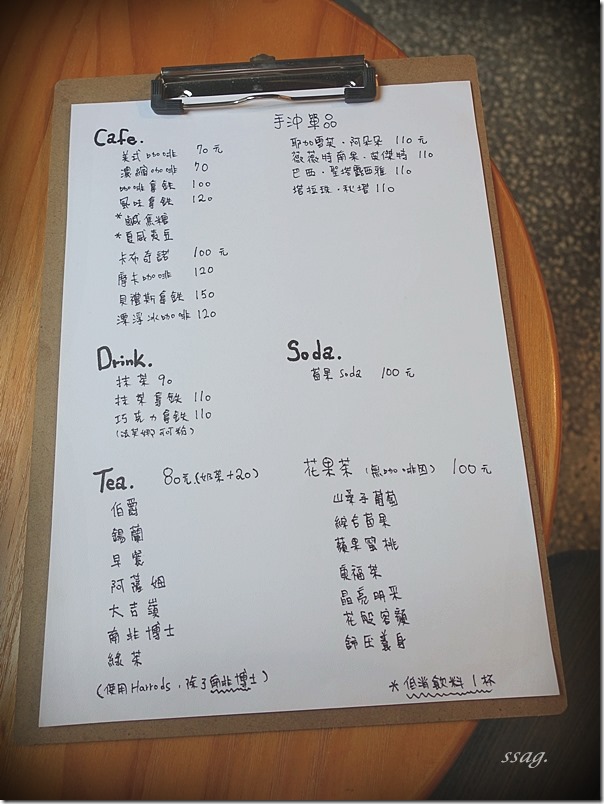 Cafe.
美式咖啡 70元
濃縮咖啡 70
咖啡拿鉄 100
風味拿鉄 120
*鹹焦糖
*夏威夷豆
卡布奇諾 100元
摩卡咖啡 120
貝禮斯拿鉄 150
漂浮冰咖啡 120
手沖單品
耶加雪菲·阿朵朵 110元
薇薇特南果·茵傑特 110
巴西·聖塔露西雅 110
塔拉珠·秋塔 110
Drink.
抹茶 90
抹茶拿鉄 110
巧克力拿鉄 110
(法芙娜可可粉)
Soda.
莓果 Soda 100元
Tea. 80元(奶茶+20)
伯爵
錫蘭
早餐
阿薩姆
大吉嶺
南非博士
綠茶
(使用Harrods,除了南非博士)
花果茶(無咖啡因) 100元
山桑子葡萄
綜合莓果
蘋果蜜桃
晶亮明采
花般容顏
舒压養身
*低消飲料1杯
ssag.